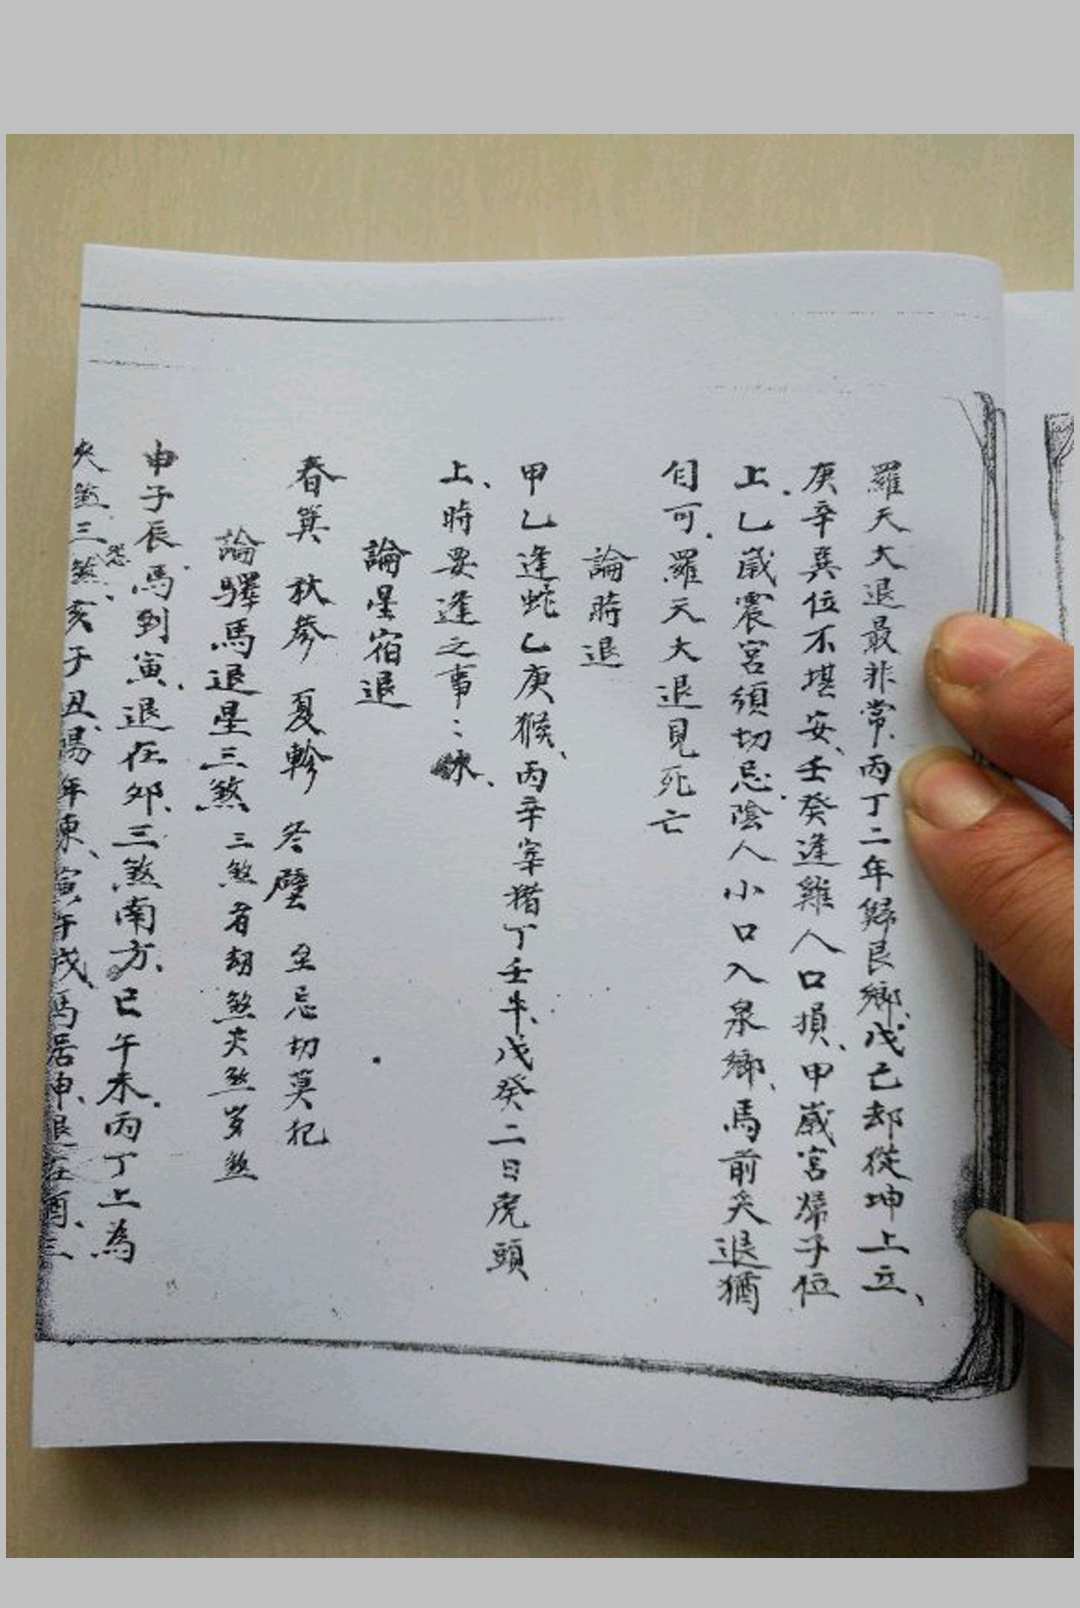 羅天大退最非常、丙丁二年歸艮鄉、戊己却從坤上立、
庚辛巽位不堪安、壬癸逢雞人口損、甲歲宮歸子位
上、乙歲震宮須切忌、陰人小口入泉鄉、馬前炙退猶
自可、羅天大退見死亡
論時退
甲乙逢蛇乙庚猴、丙辛宰猪丁壬牛、戊癸二日虎頭
上、時要逢之事：休、
論星宿退
春箕 秋參 夏軫 冬壁 至忌切莫犯
論驛馬退星三煞 三煞者劫煞夾煞歲煞
申子辰、馬到寅、退在卯、三煞南方、巳午未、丙丁上為
夾煞、三煞忌、亥子丑、陽年東、寅午戌、馬居申、退在酉、三